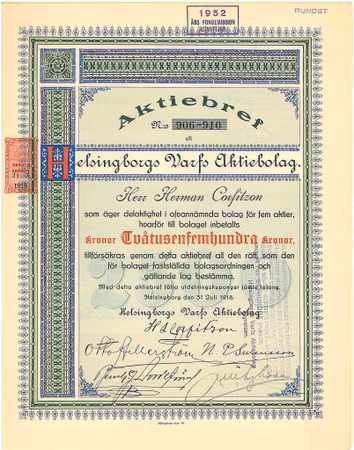 1952
ÅRS FONDEMISSION
UTNYTTJAD
BUNDET
Aktiebref
No 906-910
uti
Helsingborgs Varfs Aktiebolag.
1919
Herr Herman Corfitzon
som äger delaktighet i ofvannämnda bolag för fem aktier,
hvarför till bolaget inbetalts
Kronor Tvåtusenfemhundra Kronor,
tillförsäkras genom detta aktiebref all den rätt, som den
för bolaget fastställda bolagsordningen och
gällande lag bestämma.
Med detta aktiebref följa utdelningskuponger jämte talong.
Helsingborg den 31 Juli 1918.
Helsingborgs Varfs Aktiebolag
H Corfitzon
Otto Hillerström N. P. Swensson